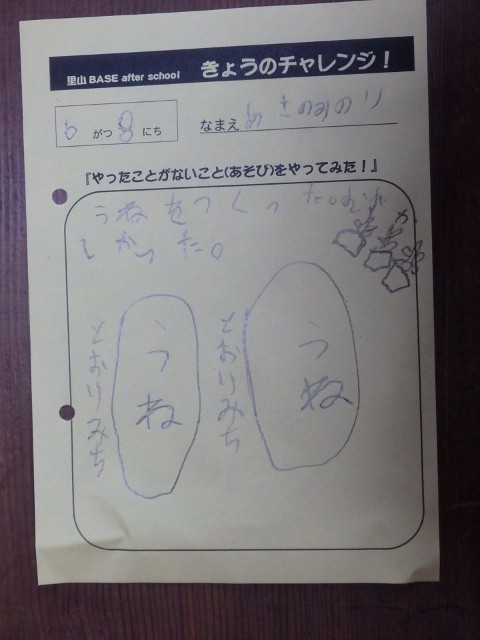 里山 BASE after school きょうのチャレンジ！
6 がつ 8 にち
なまえ あきのみのり
『やったことがないこと(あそび)をやってみた！』
うねをつくった。むずか
しかった。
とおりみち
うね
とおりみち
うね